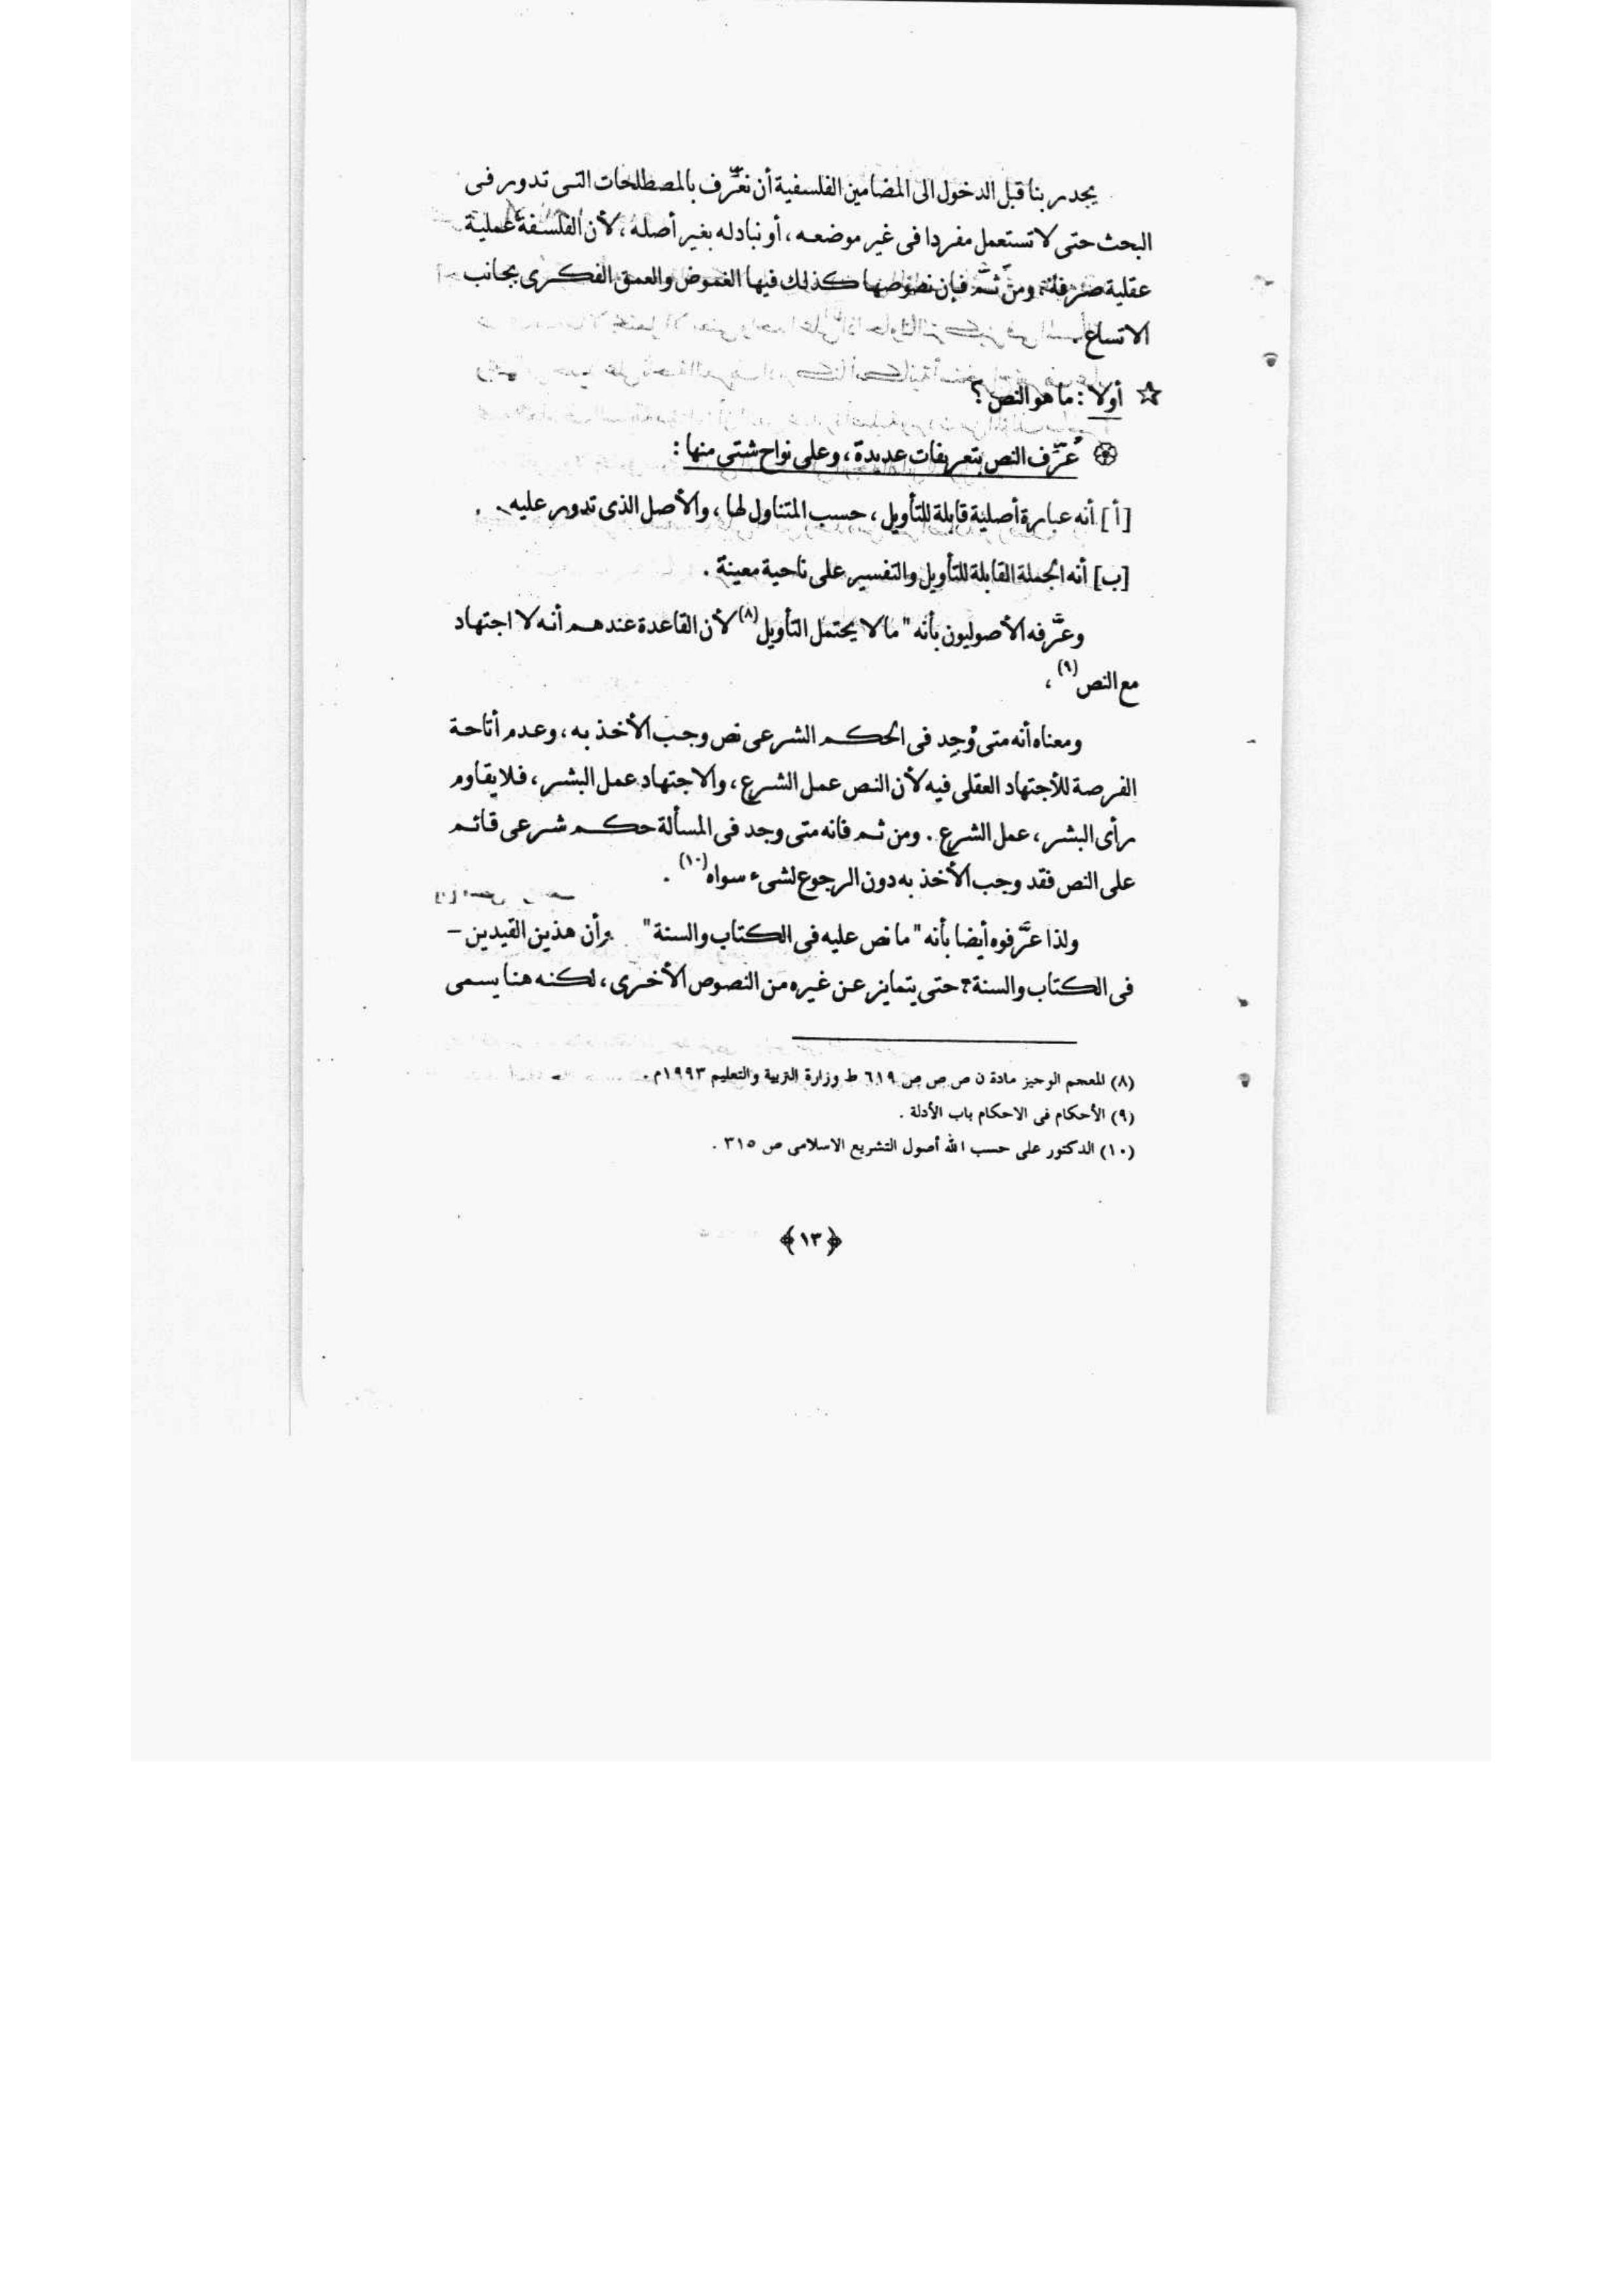 يجدر بنا قبل الدخول الى المضامين الفلسفية أن نعَرِّف بالمصطلحات التى تدور فى
البحث حتى لا تستعمل مفردا فى غير موضعه ، أو نبادله بغير أصله ، لأن الفلسفة عملية
عقلية صرفة ، ومن ثمَّ فإن نصوصها كذلك فيها الغموض والعمق الفكرى بجانب
الاتساع .
☆ أولا : ما هو النص ؟
عُرِّف النص بتعريفات عديدة ، وعلى نواح شتى منها :
[أ] أنه عبارة أصلية قابلة للتأويل ، حسب المتناول لها ، والأصل الذى تدور عليه .
[ب] أنه الجملة القابلة للتأويل والتفسير على ناحية معينة .
وعرَّفه الأصوليون بأنه " ما لا يحتمل التأويل (٨) لأن القاعدة عندهم أنه لا اجتهاد
مع النص (٩) ،
ومعناه أنه متى وُجِد فى الحكم الشرعى نص وجب الأخذ به ، وعدم أتاحة
الفرصة للأجتهاد العقلى فيه لأن النص عمل الشرع ، والاجتهاد عمل البشر ، فلا يقاوم
رأى البشر ، عمل الشرع . ومن ثم فانه متى وجد فى المسألة حكم شرعى قائم
على النص فقد وجب الأخذ به دون الرجوع لشىء سواه (١٠) .
ولذا عرَّفوه أيضا بأنه " ما نص عليه فى الكتاب والسنة " وأن هذين القيدين –
فى الكتاب والسنة ? حتى يتمايز عن غيره من النصوص الأخرى ، لكنه هنا يسمى
(٨) المعجم الوجيز مادة ن ص ص ص ٦١٩ ط وزارة التربية والتعليم ١٩٩٣م .
(٩) الأحكام فى الاحكام باب الأدلة .
(١٠) الدكتور على حسب الله أصول التشريع الاسلامى ص ٣١٥ .
﴿١٣﴾